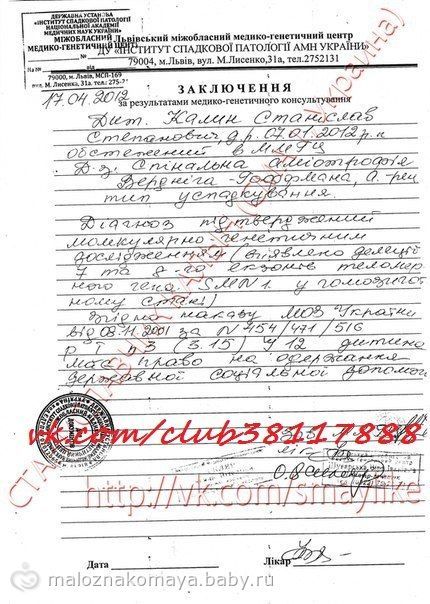 ДЕРЖАВНА УСТАНОВА
«ІНСТИТУТ СПАДКОВОЇ ПАТОЛОГІЇ
НАЦІОНАЛЬНОЇ АКАДЕМІЇ
МЕДИЧНИХ НАУК УКРАЇНИ»
МІЖОБЛАСНИЙ
МЕДИКО-ГЕНЕТИЧНИЙ ЦЕНТР
На №
від
79000, м. Львів, МСП-169
вул. М. Лисенка, 31а, тел.: 275-
Львівський міжобласний медико-генетичний центр
ДУ «ІНСТИТУТ СПАДКОВОЇ ПАТОЛОГІЇ АМН УКРАЇНИ»
79004, м.Львів, вул. М.Лисенко,31а, тел.2752131
17.04.2012
ЗАКЛЮЧЕННЯ
за результатами медико-генетичного консультування
Дит. Калин Станіслав
Степанович, д.р. 07.01.2012 р.н
обстежений в ММГЦ
Д-з. Спінальна аміотрофія
Верднiга-Гоффмана, а-рец
тип успадкування.
Діагноз підтверджений
молекулярно-генетичним
дослідженням (виявлено делеції
7 та 8-го екзонів теломер
ного гена SMN1 у гомозигот
ному стані)
Згідно наказу МОЗ України
від 08.11.2001 за N 454/471/516
р I п 3 (3.15) у 12 дитина
має право на одержання
державної соціальної допомоги
vk.com/club38117888
http://vk.com/smaylike
Дата
Лікар
maloznakomaya.baby.ru